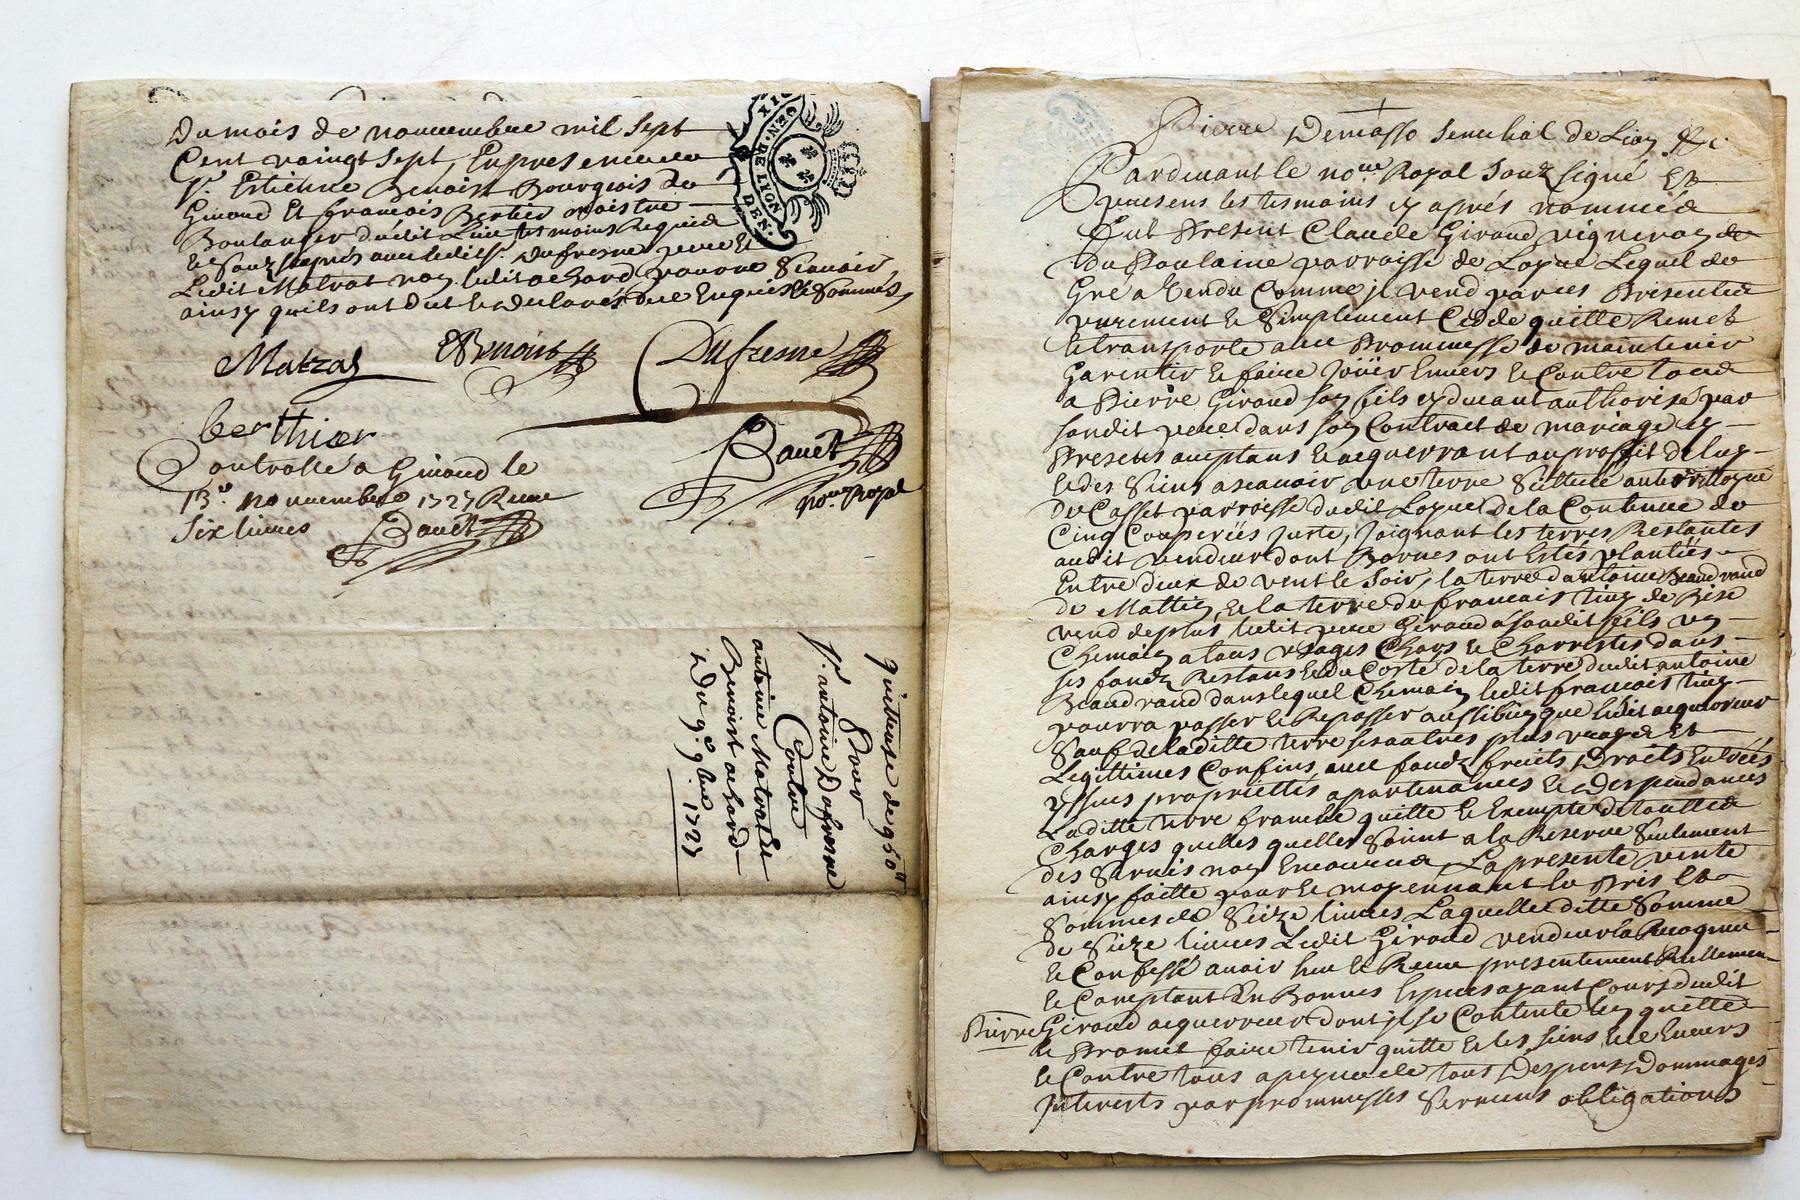 Du mois de nouembre mil Sept
Cent vaingt Sept, En presence de
Sr. Estienne Benoist Bourgeois de
Giuord Et françois Bertier maistre
Boulanger dudit Lieu tesmoins Requis
Et Souzsignés auec ledit Sr. Dufresne
Ledit Matrat non ledit achard pour ne Scauoir
ainsy quils ont dit et declarés de ce Enquis et Sommés
GEN DE LYON
DEN.
Matras
EBenoist
Dufresne
berthier
Bauet
Controllé a Giuord le
13e nouuembre 1727 Receu
Six liures Bauet
nore Royal
quittance de 950 lt
Pour
Sr. antoine Dufresne
Contre
antoine Matrat Et
Benoist achard
Du 9e 9bre 1727
Pierre Demasso Senechal de Lion &c
Pardeuant le nore Royal Souzsigné Et
presens les tesmoins cy aprés nommés
fut Present Claude Giraud vigneron de
du Poulaine parroisse de Loyre Lequel de
Gré a Vendu Comme jl vend par ces Presentes
purement et Simplement Cedde quitte Remet
et transporte auec Prommesse de maintenir
Garentir et faire Joüir Enuers et Contre tous
a Pierre Giraud son fils cy deuant authorisé par
sondit pere dans son Contract de mariage cy
Present acceptant et acquerrant au proffit de luy
et des Siens ascauoir une terre Scittuée au territoyre
du Casset parroisse dudit Loyre de la Contenue de
Cinq Couperiés Juste, Joignant les terres Restantes
audit vendeur dont Bornes ont Estés plantiés
Entre deux de vent le Soir, la terre d'antoine Beaudrand
de Mattin, et la terre du francois de Bise
vend de plus ledit pere Giraud a sondit fils un
Chemain a tous usages Chars et Charrettes dans
ses fondz Restans et du Costé de la terre dudit antoine
Beaudrand dans lequel Chemain ledit francois
pourra passer et Repasser aussi bien que ledit acquereur
Sauf de la ditte terre ses autres plus vrays Et
Legittimes Confins, auec fondz fruits, Droits Entrées
yssues proprietés apartenances et despendances
Laditte terre franche quitte et Exempte de touttes
Charges quelles quelles Soint a la Reserue Seulement
des Seruis non Encourus La presente vente
ainsy faitte pour et moyennant le Pris Et
Sommes de Seize liures Laquelle ditte Somme
de Seize liures Ledit Giraud vendeur la Recogneu
et Confessé auoir heu et Receu presentement Rellement
et Comptant En Bonnes Especes ayant Cours dudit
Pierre Giraud acquerreur dont jl se Contente len quitte
et Promet faire tenir quitte et les siens et Enuers
et Contre tous a peyne de tous Despens Dommages
Jnterests par prommesses Sermens obligations